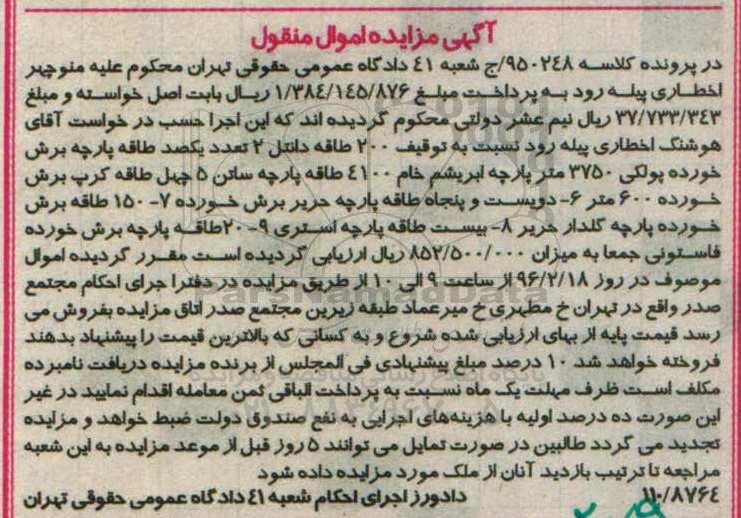 آگهی مزایده اموال منقول
در پرونده کلاسه ۹۵۰۲۴۸/ج شعبه ۴۱ دادگاه عمومی حقوقی تهران محکوم علیه منوچهر
اخطاری پیله رود به پرداخت مبلغ ۱/۳۸۴/۱۴۵/۸۷۶ ریال بابت اصل خواسته و مبلغ
۳۷/۷۳۳/۳۴۳ ریال نیم عشر دولتی محکوم گردیده اند که این اجرا حسب در خواست آقای
هوشنگ اخطاری پیله رود نسبت به توقیف ۲۰۰ طاقه دانتل ۲ تعدد یکصد طاقه پارچه برش
خورده پولکی ۳۷۵۰ متر پارچه ابریشم خام ۴۱۰۰ طاقه پارچه ساتن ۵ چهل طاقه کرپ برش
خورده ۶۰۰ متر ۶- دویست و پنجاه طاقه پارچه حریر برش خورده ۷- ۱۵۰ طاقه برش
خورده پارچه گلدار حریر ۸- بیست طاقه پارچه استری ۹- ۲۰طاقه پارچه برش خورده
فاستونی جمعا به میزان ۸۵۲/۵۰۰/۰۰۰ ریال ارزیابی گردیده است مقرر گردیده اموال
موصوف در روز ۹۶/۲/۱۸ از ساعت ۹ الی ۱۰ از طریق مزایده در دفترا جرای احکام مجتمع
صدر واقع در تهران خ مطهری خ میرعماد طبقه زیرین مجتمع صدر اتاق مزایده بفروش می
رسد قیمت پایه از بهای ارزیابی شده شروع و به کسانی که بالاترین قیمت را پیشنهاد بدهند
فروخته خواهد شد ۱۰ درصد مبلغ پیشنهادی فی المجلس از برنده مزایده دریافت نامبرده
مکلف است ظرف مهلت یک ماه نسبت به پرداخت الباقی ثمن معامله اقدام نمایید در غیر
این صورت ده درصد اولیه با هزینه‌های اجرایی به نفع صندوق دولت ضبط خواهد و مزایده
تجدید می گردد طالبین در صورت تمایل می توانند ۵ روز قبل از موعد مزایده به این شعبه
مراجعه تا ترتیب بازدید آنان از ملک مورد مزایده داده شود
۱۱۰/۸۷۶۴ دادورز اجرای احکام شعبه ۴۱ دادگاه عمومی حقوقی تهران
ParsNamadData